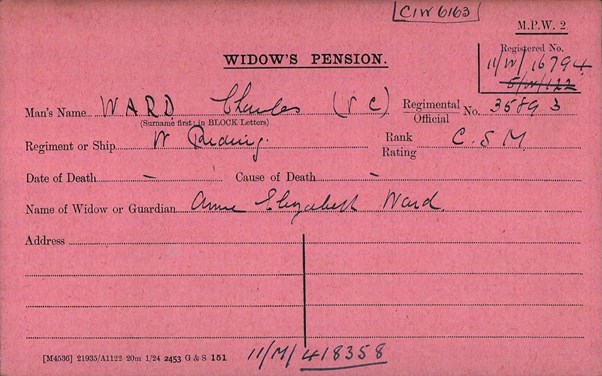 C/W 6163
M.P.W. 2
WIDOW'S PENSION.
Registered No.
11/W/16794
5/W/122
Man's Name WARD Charles (VC) Regimental Official No. 35893
(Surname first: in BLOCK Letters)
Regiment or Ship W Riding. Rank Rating C.S.M.
Date of Death — Cause of Death -
Name of Widow or Guardian Annie Elizabeth Ward.
Address
[M4536] 21935/A1122 20m 1/24 2453 G & S 151 11/M/418358